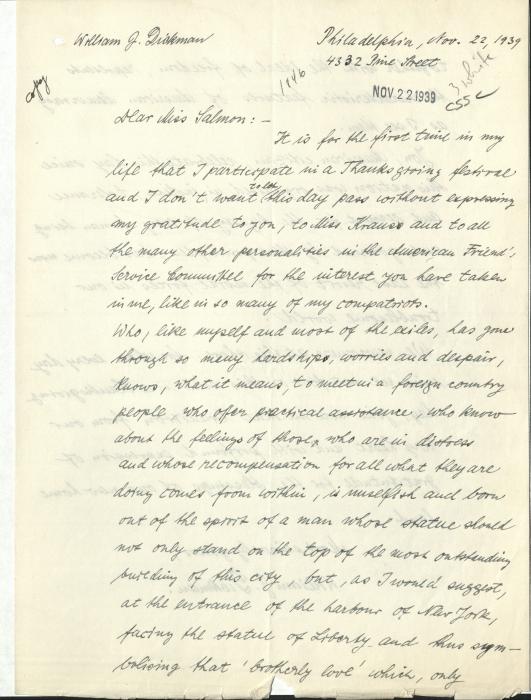 William G. Dickman
Philadelphia, Nov. 22, 1939
4332 Pine Street
copy
1146
3 white
CSS ✓
NOV 22 1939
Dear Miss Salmon: -
It is for the first time in my
life that I participate in a Thanksgiving festival
and I don't want to let this day pass without expressing
my gratitude to you, to Miss Krauss and to all
the many other personalities in the American Friend's
Service Committee for the interest you have taken
in me, like in so many of my compatriots.
Who, like myself and most of the exiles, has gone
through so many hardships, worries and despair,
knows, what it means, to meet in a foreign country
people who offer practical assistance, who know
about the feelings of those, who are in distress
and whose recompensation for all what they are
doing comes from within, is unselfish and born
out of the spirit of a man whose statue should
not only stand on the top of the most outstanding
building of this city, but, as I would suggest,
at the entrance of the harbour of New York,
facing the statue of Liberty and thus sym-
bolicing that 'brotherly love' which, only